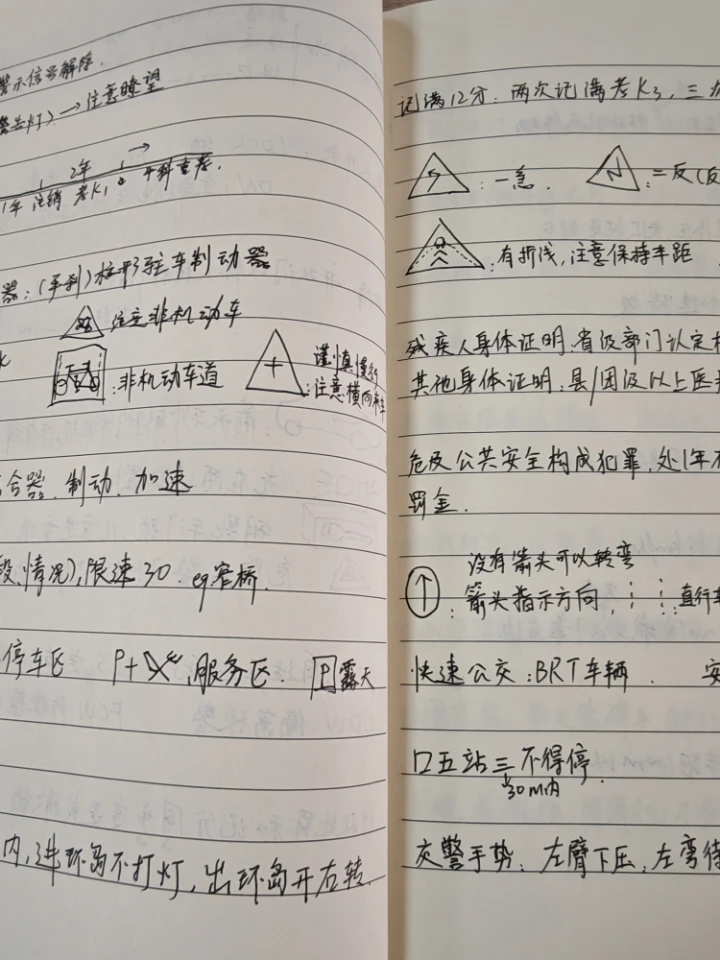 警示信号解除.
警告灯) → 注意瞭望
2年
1年 注销 考K1。 千科重考.
器:(手刹)松开驻车制动器
注意非机动车
:非机动车道
谨慎慢行
:注意横向来车
合器. 制动. 加速
段,情况),限速30. eg窄桥.
停车区 P+ ,服务区. P露天
内,进环岛不打灯,出环岛开右转.
记满12分. 两次记满考K3,三
:一急. :二反(反
:有折线,注意保持车距
残疾人身体证明:省级部门认定
其他身体证明:县/团级以上医
危及公共安全构成犯罪,处1年
罚金.
没有箭头可以转弯
↑ :箭头指示方向, 直行车
快速公交:BRT车辆.
口五站三不得停.
30m内
交警手势:左臂下压:左弯待